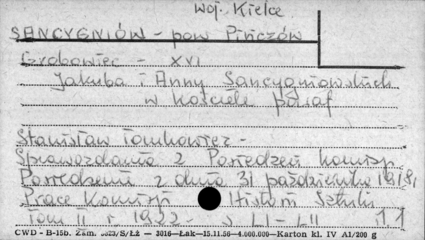 woj. Kielce
SANCYGNIÓW - pow Pińczów
Grobowiec - XVI
Jakuba i Anny Sancygniowskich
w kościele paraf
Stanisław Tomkowicz -
Sprawozdania z Posiedzeń Komisji
Posiedzenie z dnia 31 października 1918,
Prace Komisji Historii Sztuki
Tom II r 1922 - s. LI-LII 11
CWD - B-15b. Zam. S/Łż — 3016-Łak-15.11.56-4.000.000-Karton kl. IV A1/200 g